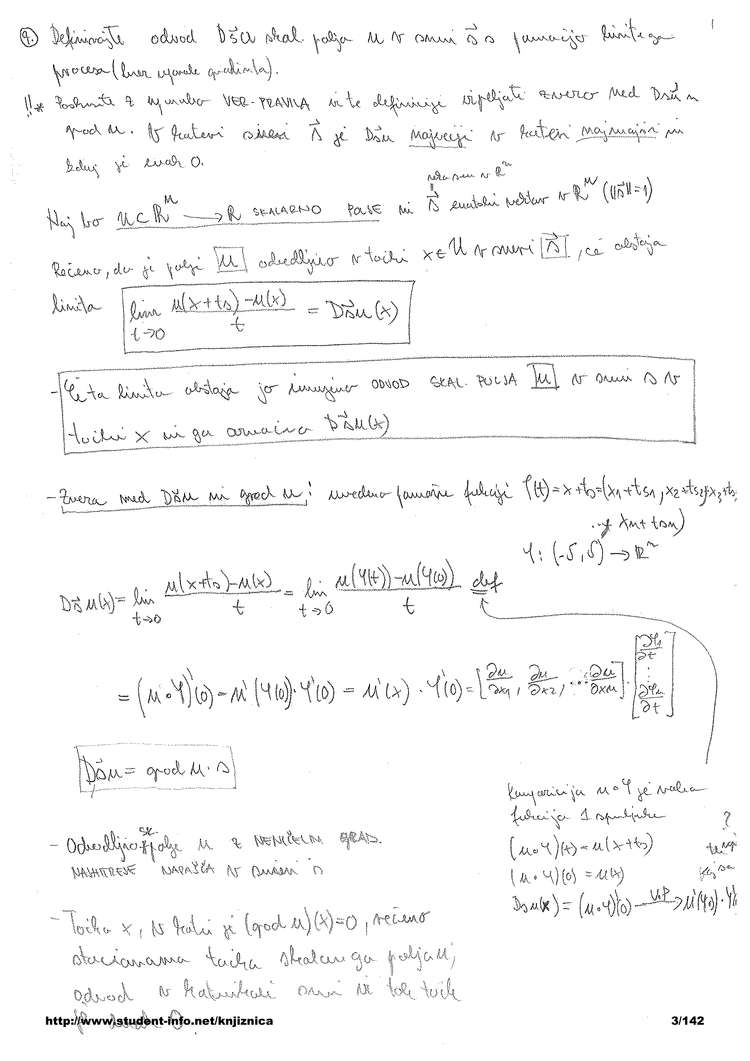 1
9. Definirajte odvod Ds⃗u skal. polja u v smeri s⃗ s pomočjo limitnega
procesa (brez uporabe gradienta).
!!* Poskusite z uporabo VER. PRAVILA iz te definicije izpeljati zvezo med Ds⃗u in
grad u. V kateri smeri s⃗ je Ds⃗u največji v kateri najmanjši in
kdaj je enak 0.
Naj bo u⊂R^M → R SKALARNO POLJE in s⃗ enotski vektor v R^M (||s⃗||=1)
Rečemo, da je polje u odvedljivo v točki x∈U v smeri s⃗, če obstaja
limita lim t→0 u(x+ts)-u(x) / t = Ds⃗u(x)
- Če ta limita obstaja jo imenujemo ODVOD SKAL. POLJA u v smeri s v
točki x in ga označimo Ds⃗u(x)
- Zveza med Ds⃗u in grad u: uvedemo pomožno funkcijo φ(t)=x+ts=(x1+ts1, x2+ts2, x3+ts
..., xn+tsn)
φ: (-δ,δ) → R^n
Ds⃗u(x)= lim t→0 u(x+ts)-u(x) / t = lim t→0 u(φ(t))-u(φ(0)) / t def
= (u∘φ)'(0) = u'(φ(0))·φ'(0) = u'(x)·φ'(0) = [∂u/∂x1, ∂u/∂x2, ... ∂u/∂xn]·[∂φ1/∂t ⋮ ∂φn/∂t]
Ds⃗u = grad u·s
Kompozicija u∘φ je realna
funkcija 1 spremenljivke
(u∘φ)(t)=u(x+ts)
(u∘φ)(0)=u(x)
Ds u(x) = (u∘φ)'(0) V.P → u'(φ(0))·φ'(
?
- Odvedljivo sk. polje u z NENIČELNIM GRAD.
NAJHITREJE NARAŠČA v smeri
- Točka x, v kateri je (grad u)(x)=0, rečemo
stacionarna točka skalarnega polja u;
odvod v katerikoli smeri v tej točki
http://www.student-info.net/knjiznica
3/142